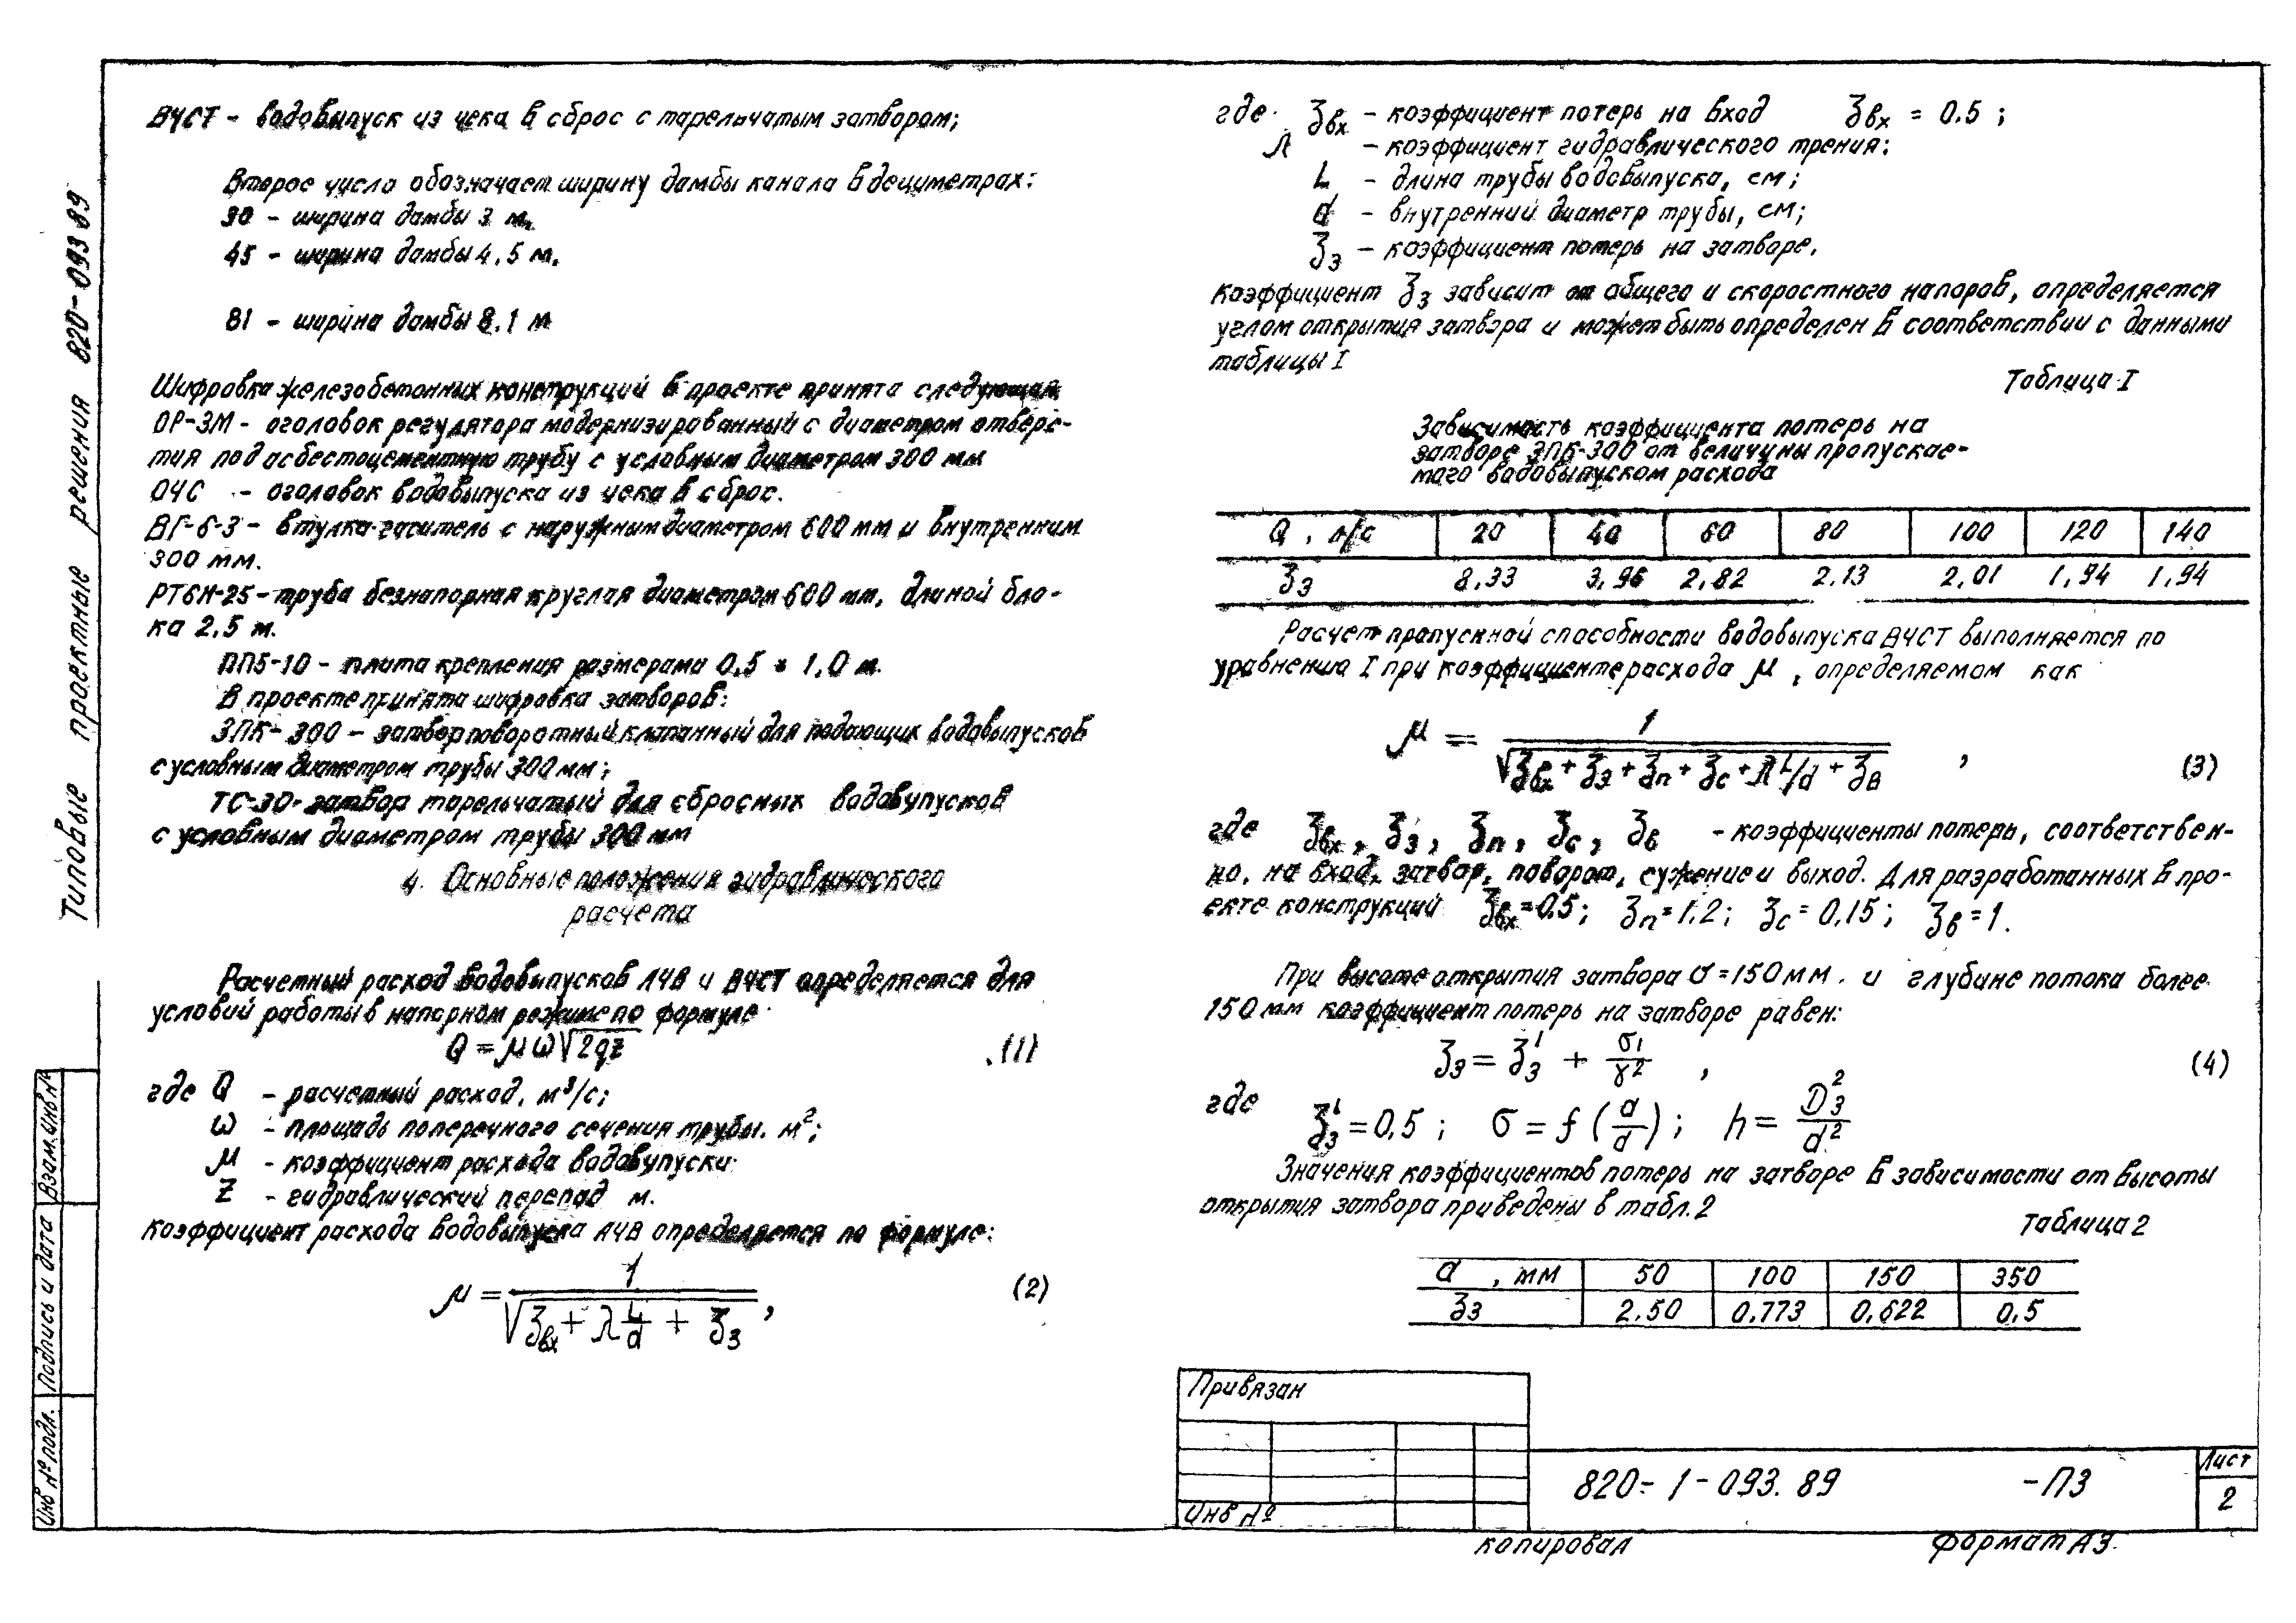 Типовые проектные решения 820-093 89
ВЧСТ - водовыпуск из чека в сброс с тарельчатым затвором;
Второе число обозначает ширину дамбы канала в дециметрах:
30 - ширина дамбы 3 м.
45 - ширина дамбы 4,5 м.
81 - ширина дамбы 8,1 м
Шифровка железобетонных конструкций в проекте принята следующая
ОР-3М - оголовок регулятора модернизированный с диаметром отверс-
тия под асбестоцементную трубу с условным диаметром 300 мм
ОЧС - оголовок водовыпуска из чека в сброс.
ВГ-6-3 - втулка-гаситель с наружным диаметром 600 мм и внутренним
300 мм.
РТ6Н-25 - труба безнапорная круглая диаметром 600 мм, длиной бло-
ка 2,5 м.
ПП5-10 - плита крепления размерами 0,5 × 1,0 м.
В проекте принята шифровка затворов:
ЗПК-300 - затвор поворотный клапанный для подающих водовыпусков
с условным диаметром трубы 300 мм;
ТС-30- затвор тарельчатый для сбросных водовупусков
с условным диаметром трубы 300 мм
4. Основные положения гидравлического
расчета
Расчетный расход водовыпусков АЧВ и ВЧСТ определяется для
условий работы в напорном режиме по формуле
Q = μ ω √2gz (1)
где Q - расчетный расход, м³/с;
ω - площадь поперечного сечения трубы, м²;
μ - коэффициент расхода водовупуски
Z - гидравлический перепад м.
Коэффициент расхода водовыпуска АЧВ определяется по формуле:
μ = 1 / √(ζвх + λ L/d + ζз), (2)
где ζвх - коэффициент потерь на вход ζвх = 0.5;
λ - коэффициент гидравлического трения;
L - длина трубы водовыпуска, см;
d - внутренний диаметр трубы, см;
ζз - коэффициент потерь на затворе.
Коэффициент ζз зависит от общего и скоростного напоров, определяется
углом открытия затвора и может быть определен в соответствии с данными
таблицы I
Таблица I
Зависимость коэффициента потерь на
затворе ЗПК-300 от величины пропускае-
мого водовыпуском расхода
Q, л/с 20 40 60 80 100 120 140
ζз 8,33 3,96 2,82 2,13 2,01 1,94 1,94
Расчет пропускной способности водовыпуска ВЧСТ выполняется по
уравнению I при коэффициенте расхода μ, определяемом как
μ = 1 / √(ζвх + ζз + ζп + ζс + λ L/d + ζв), (3)
где ζвх, ζз, ζп, ζс, ζв - коэффициенты потерь, соответствен-
но, на вход, затвор, поворот, сужение и выход. Для разработанных в про-
екте конструкций ζвх=0,5; ζп=1,2; ζс=0,15; ζв=1.
При высоте открытия затвора σ=150мм. и глубине потока более
150 мм коэффициент потерь на затворе равен:
ζз = ζз' + σ1/γ², (4)
где ζз' = 0,5; σ = f (a/d); h = Dз²/d²
Значения коэффициентов потерь на затворе в зависимости от высоты
открытия затвора приведены в табл. 2
Таблица 2
a, мм 50 100 150 350
ζз 2.50 0,773 0,622 0,5
Взам. инв №
Подпись и дата
Инв № подл.
Привязан
Инв №
820-1-093.89 -ПЗ
Лист
2
копировал Формат А3